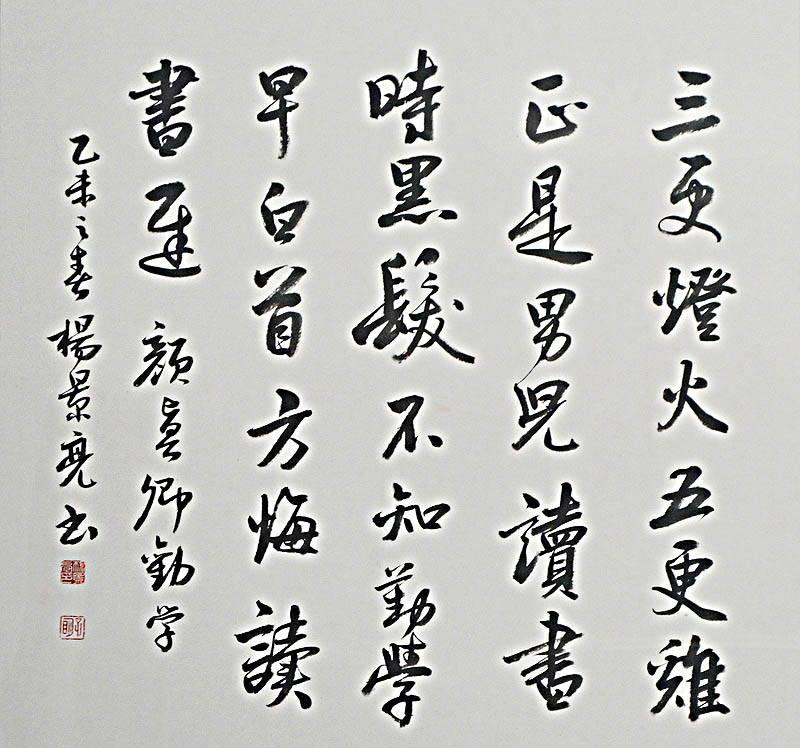 三更燈火五更雞
正是男兒讀書
時黑髮不知勤學
早白首方悔讀
書遲 顏真卿勸学
乙未之春楊景亮书